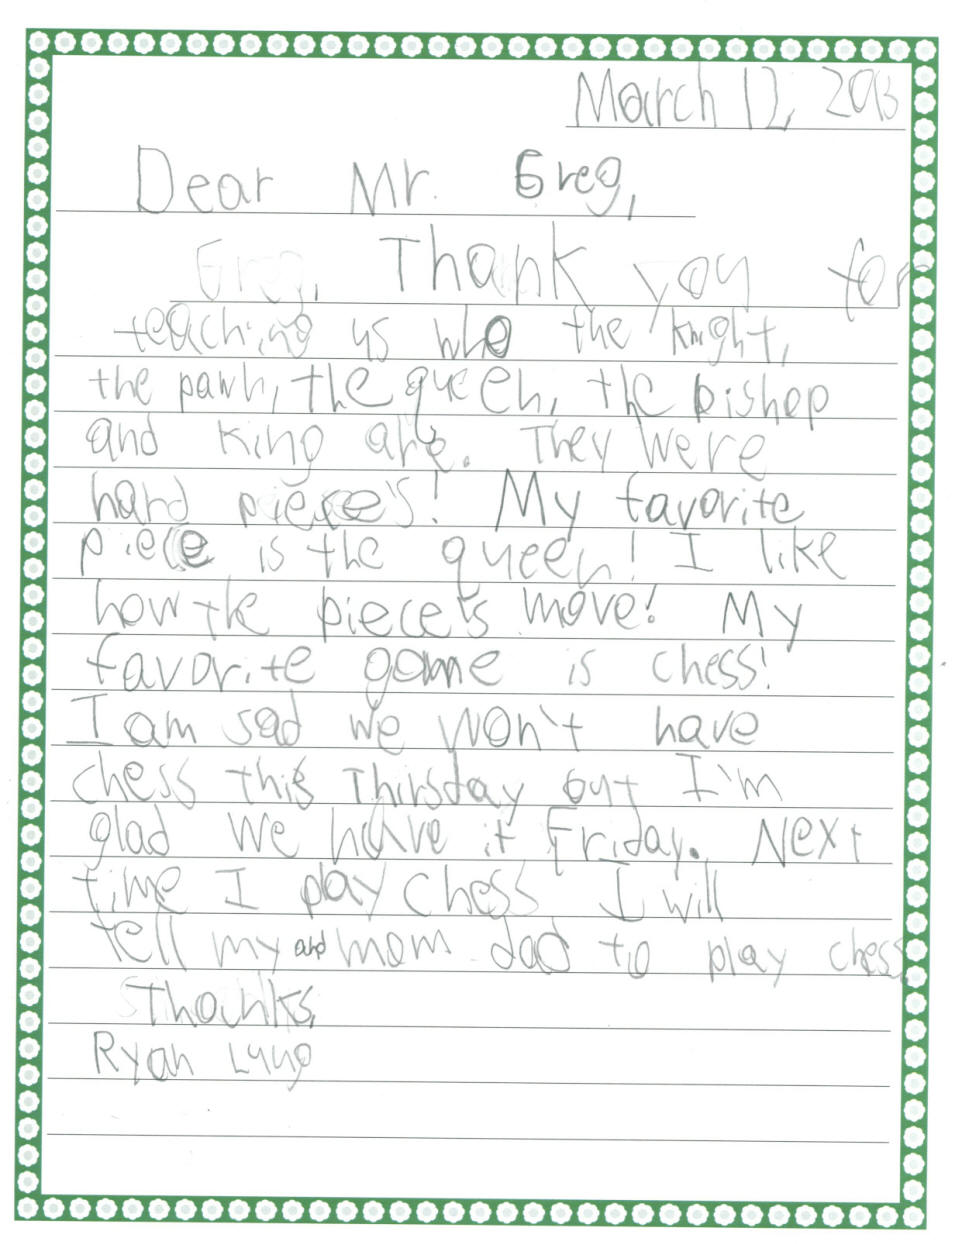 March 12, 2013
Dear Mr. Greg,
Thank you for
teaching us who the knight,
the pawn, the queen, the bishop
and King are. They were
hard piece's! My favorite
piece is the queen! I like
how the piece's move! My
favorite game is chess!
I am sad we won't have
chess this Thirsday but I'm
glad we have it Friday. Next
time I play chess I will
tell my and mom dad to play chess
Thanks,
Ryan Lung